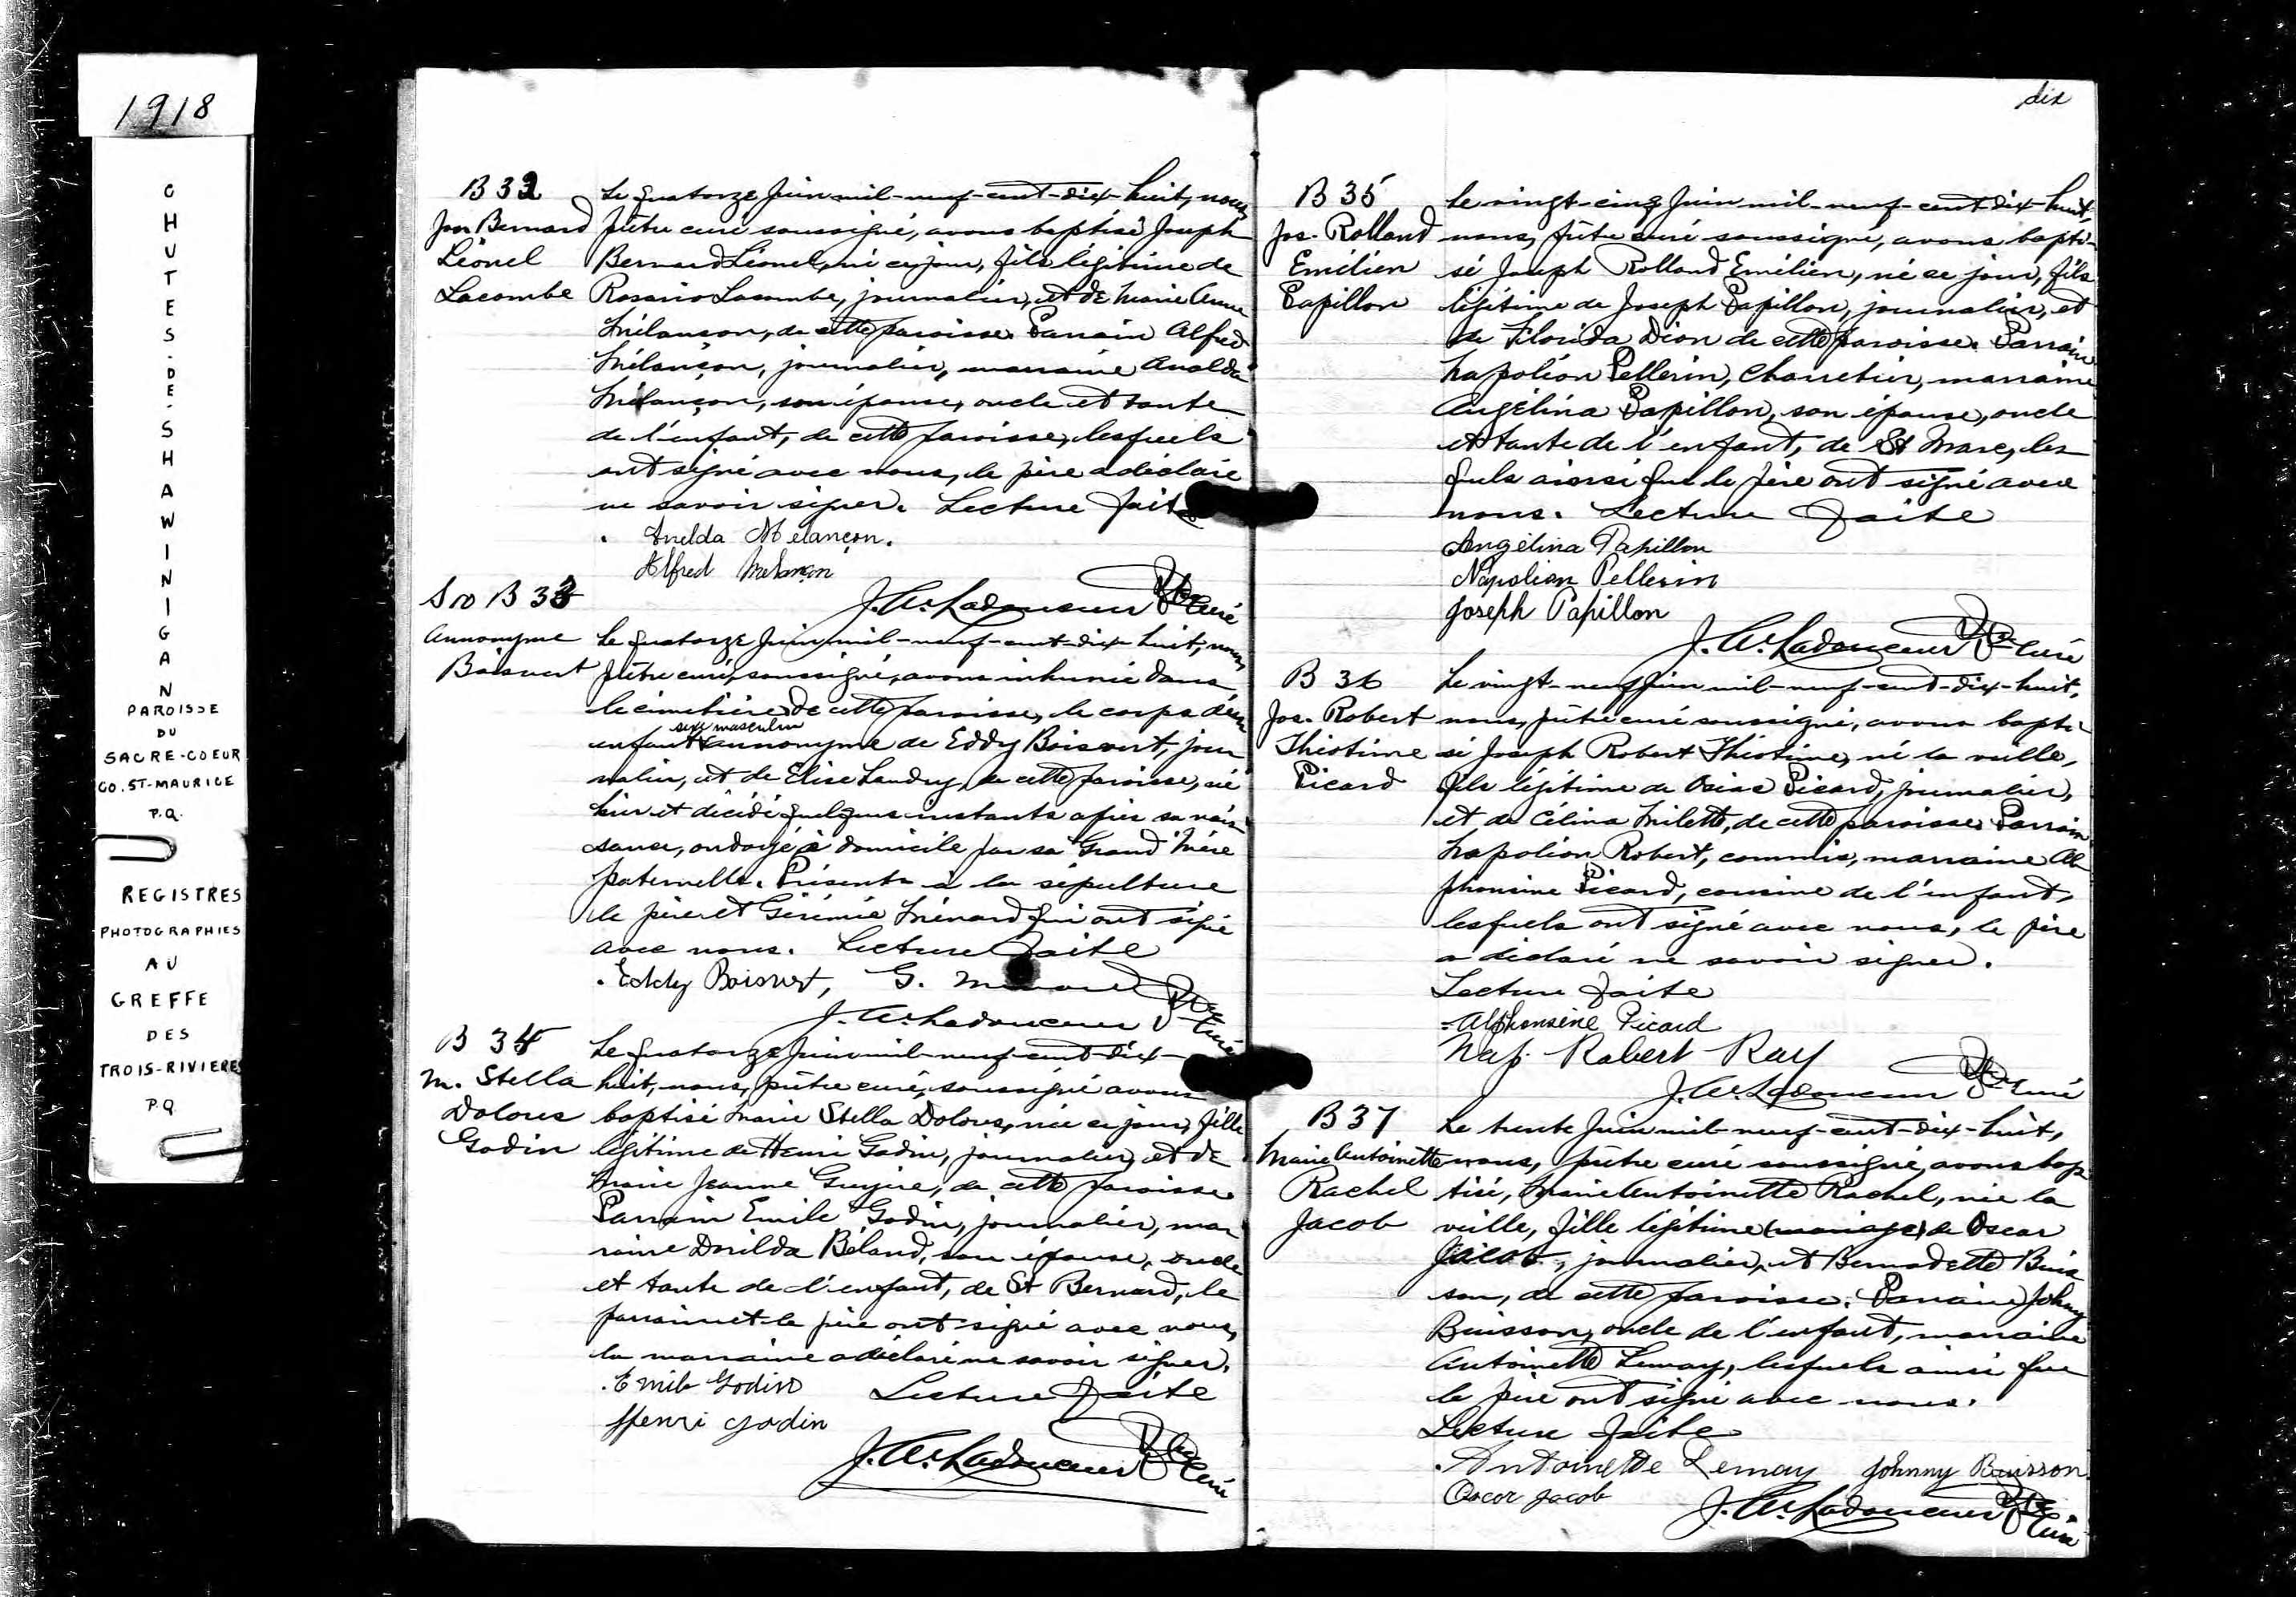 1918
CHUTES-DE-SHAWINIGAN
PAROISSE
DU
SACRE-COEUR
CO. ST-MAURICE
P.Q.
REGISTRES
PHOTOGRAPHIES
AU
GREFFE
DES
TROIS-RIVIERES
P.Q.
B 32
Jos Bernard
Léonel
Lacombe
Le quatorze Juin mil-neuf-cent-dix-huit, nous,
prêtre curé soussigné, avons baptisé Joseph
Bernard Léonel, né ce jour, fils légitime de
Rosario Lacombe, journalier, et de Marie Anne
Mélançon, de cette paroisse. Parrain Alfred
Mélançon, journalier, marraine Analda
Mélançon, son épouse, oncle et tante
de l'enfant, de cette paroisse, lesquels
ont signé avec nous, le père a déclaré
ne savoir signer. Lecture faite
Anelda Melançon.
Alfred Melançon
J. A. Ladouceur Ptre Curé
S 10 B 33
Annonyme
Boisvert
Le quatorze Juin mil-neuf-cent-dix-huit, nous,
prêtre curé, soussigné, avons inhumé dans
le cimetière de cette paroisse, le corps d'un
sexe masculin
enfant annonyme de Eddy Boisvert, jour
nalier, et de Elise Landry, de cette paroisse, né
hier et décédé quelques instants après sa nais-
sance, ondoyé à domicile par sa Grand'Mère
paternelle. Présents à la sépulture
le père et Gérémie Ménard qui ont signé
avec nous. Lecture faite
Eddy Boisvert, G. Menard
J. A. Ladouceur Ptre Curé
B 34
M. Stella
Dolores
Godin
Le quatorze Juin mil-neuf-cent-dix-
huit, nous, prêtre curé, soussigné avons
baptisé Marie Stella Dolores, née ce jour, fille
légitime de Henri Godin, journalier, et de
Marie Jeanne Gruyère, de cette paroisse.
Parrain Emile Godin, journalier, mar
raine Dorilda Béland, son épouse, oncle
et tante de l'enfant, de St Bernard, le
parrain et le père ont signé avec nous,
la marraine a déclaré ne savoir signer.
Emile Godin Lecture faite
Henri Godin
J. A. Ladouceur Ptre Curé
dix
B 35
Jos. Rolland
Emélien
Papillon
Le vingt-cinq Juin mil-neuf-cent-dix-huit,
nous, prêtre curé soussigné, avons bapti-
sé Joseph Rolland Emélien, né ce jour, fils
légitime de Joseph Papillon, journalier, et
de Florida Dion de cette paroisse. Parrain
Napoléon Pellerin, Charretier, marraine
Angélina Papillon, son épouse, oncle
et tante de l'enfant, de St Marc, les
quels ainsi que le père ont signé avec
nous. Lecture faite
Angélina Papillon
Napolion Pellerin
Joseph Papillon
J. A. Ladouceur Ptre Curé
B 36
Jos. Robert
Théotime
Picard
Le vingt-neuf Juin mil-neuf-cent-dix-huit,
nous, prêtre curé soussigné, avons bapti-
sé Joseph Robert Théotime, né la veille,
fils légitime de Osias Picard, journalier,
et de Célina Milette, de cette paroisse. Parrain
Napoléon Robert, commis, marraine Al
phonsine Picard, cousine de l'enfant,
lesquels ont signé avec nous, le père
a déclaré ne savoir signer.
Lecture faite
Alphonsine Picard
Nap. Robert Ray
J. A. Ladouceur Ptre Curé
B 37
Marie Antoinette
Rachel
Jacob
Le trente Juin mil-neuf-cent-dix-huit,
nous, prêtre curé soussigné, avons bap
tisé, Marie Antoinette Rachel, née la
veille, fille légitime (mariage) de Oscar
Jacob, journalier, et Bernadette Buis
son, de cette paroisse. Parrain Johny
Buisson, oncle de l'enfant, marraine
Antoinette Lemay, lesquels ainsi que
le père ont signé avec nous.
Lecture faite
Antoinette Lemay Johnny Buisson
Oscar Jacob
J. A. Ladouceur Ptre Curé